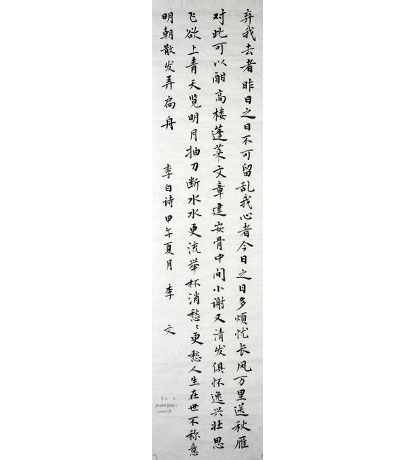 弃我去者昨日之日不可留乱我心者今日之日多烦忧长风万里送秋雁
对此可以酣高楼蓬莱文章建安骨中间小谢又清发俱怀逸兴壮思
飞欲上青天览明月抽刀断水水更流举杯消愁：更愁人生在世不称意
明朝散发弄扁舟 李白诗甲午夏月 李文